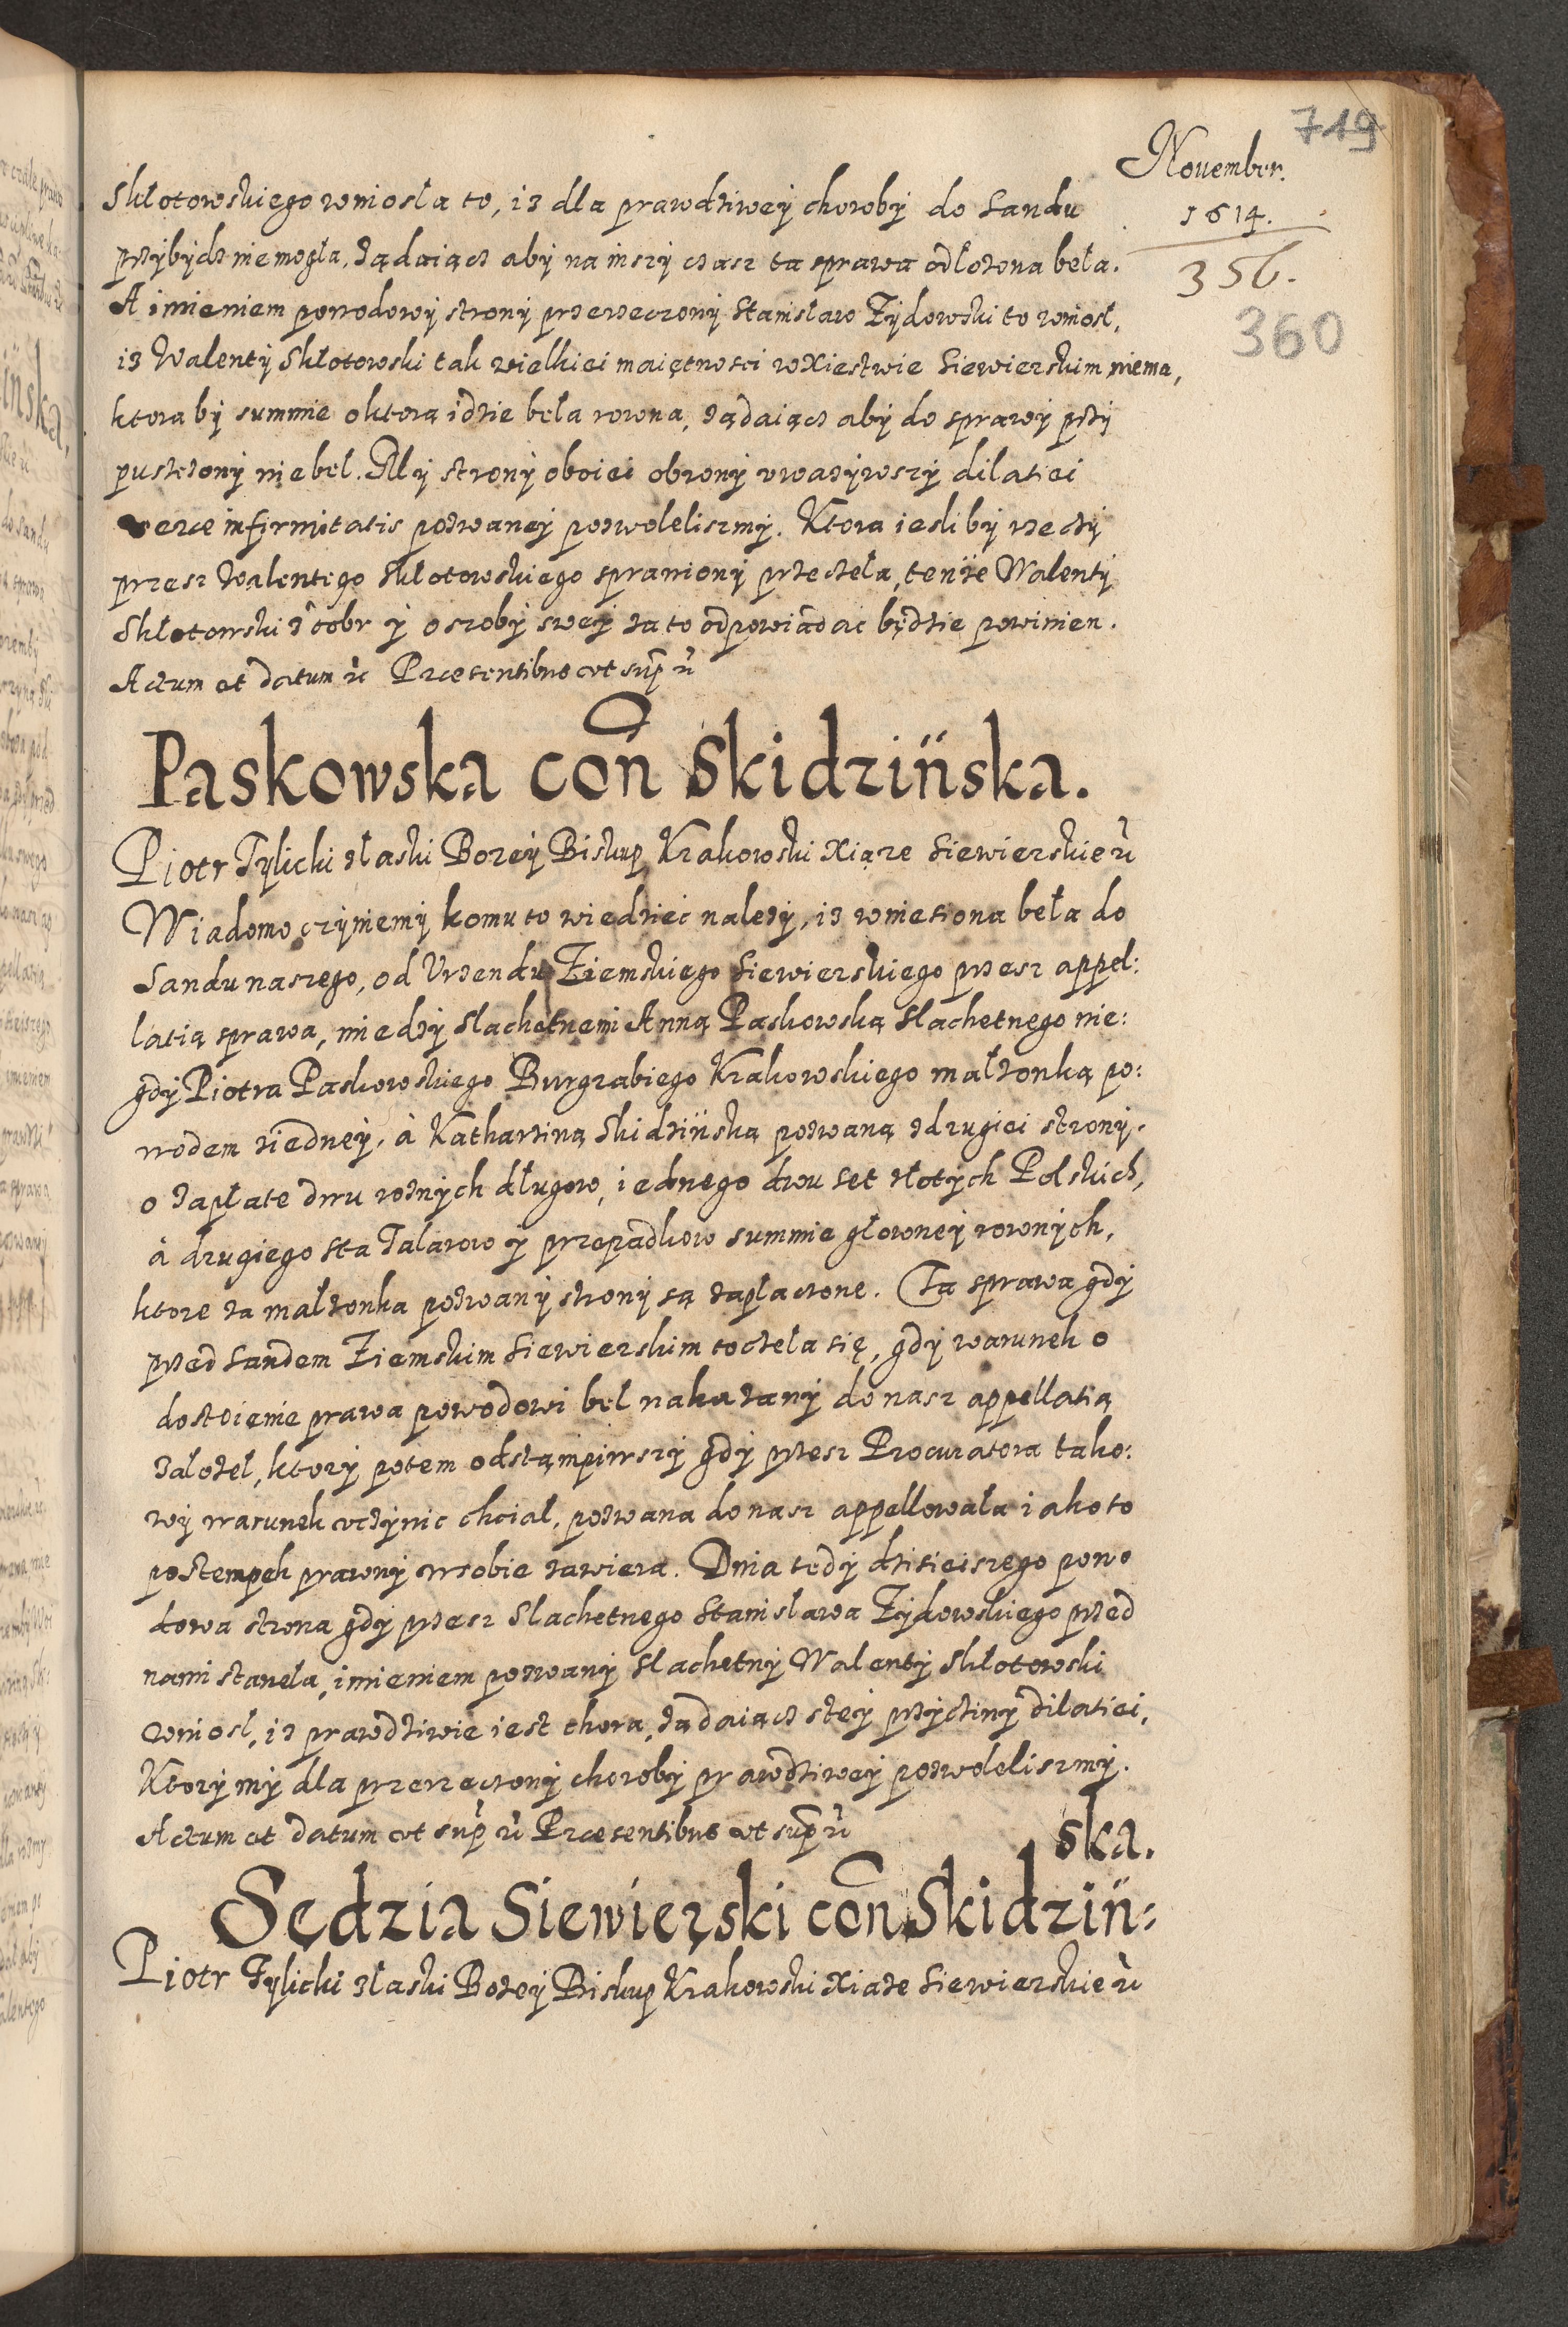 719
November.
1614.
356.
360
Skłotowskiego wniosła to, iz dla prawdziwey choroby do Sandu
przybydz niemogła, żądaiącz aby na inszy czasz ta sprawa odłożona beła.
A imieniem powodowy strony przerzeczony Stanisław Zydowski to wniosł,
iz Walenty Skłotowski tak wielkiei maiętnosci w Xiestwie Siewierskim niema,
ktora by summie o ktorą idzie beła rowna, żądaiącz aby do sprawy przy
pusczony niebel. My strony oboiei obrony uważywszy dilatiei
verae infirmitatis pozwaney pozwolelismy. Ktora iesliby rzeczy
przesz Walentego Skłotowskiego sprawiony przeczeła, tenże Walenty
Skłotowski z dobr y osoby swey za to odpowiadac będzie powinien.
Actum et datum &c Praesentibus ut supr &c
Paskowska con Skidzińska.
Piotr Tylicki z łaski Bozey Biskup Krakowski Xiąze Siewierskie &c
Wiadomo czyniemy komu to wiedziec należy, iz wniesiona beła do
Sandu naszego, od Urzendu Ziemskiego Siewierskiego przesz appel:
latią sprawa, miedzy slachetnemi Anną Paskowską slachetnego nie:
gdy Piotra Paskowskiego Burgrabiego Krakowskiego małżonką po:
wodem ziedney, à Katharziną Skidzińską pozwaną z drugiei strony.
o zapłate dwu roznych długow, iednego dwu set złotych Polskich,
à drugiego sta Talarow y przepadkow summie głowney rownych,
ktore za małżonka pozwany strony są zapłaczone. Ta sprawa gdy
przed Sandem Ziemskim Siewierskim toczeła się, gdy warunek o
dostoienie prawa powodowi bel nakazany do nasz appellatią
założeł, ktory potem odstąmpiwszy gdy przesz Procuratora tako:
wy warunek uczynic chciał, pozwana do nasz appellowała iako to
postempek prawny w sobie zawiera. Dnia tedy dzisieiszego powo
dowa strona gdy przesz Slachetnego Stanisława Zydowskiego przed
nami staneła, imieniem pozwany slachetny Walenty Skłotowski
wniosł, iz prawdziwie iest chora, żądaiącz s tey przyczyny dilatiei,
Ktory my dla przerzeczony choroby prawdziwey pozwolelismy.
Actum et datum ut supr &c Praesentibus ut supr &c
ska.
Sędzia Siewierski con Skidziń:
Piotr Tylicki z łaski Bożey Biskup Krakowski Xiąże Siewierskie &c